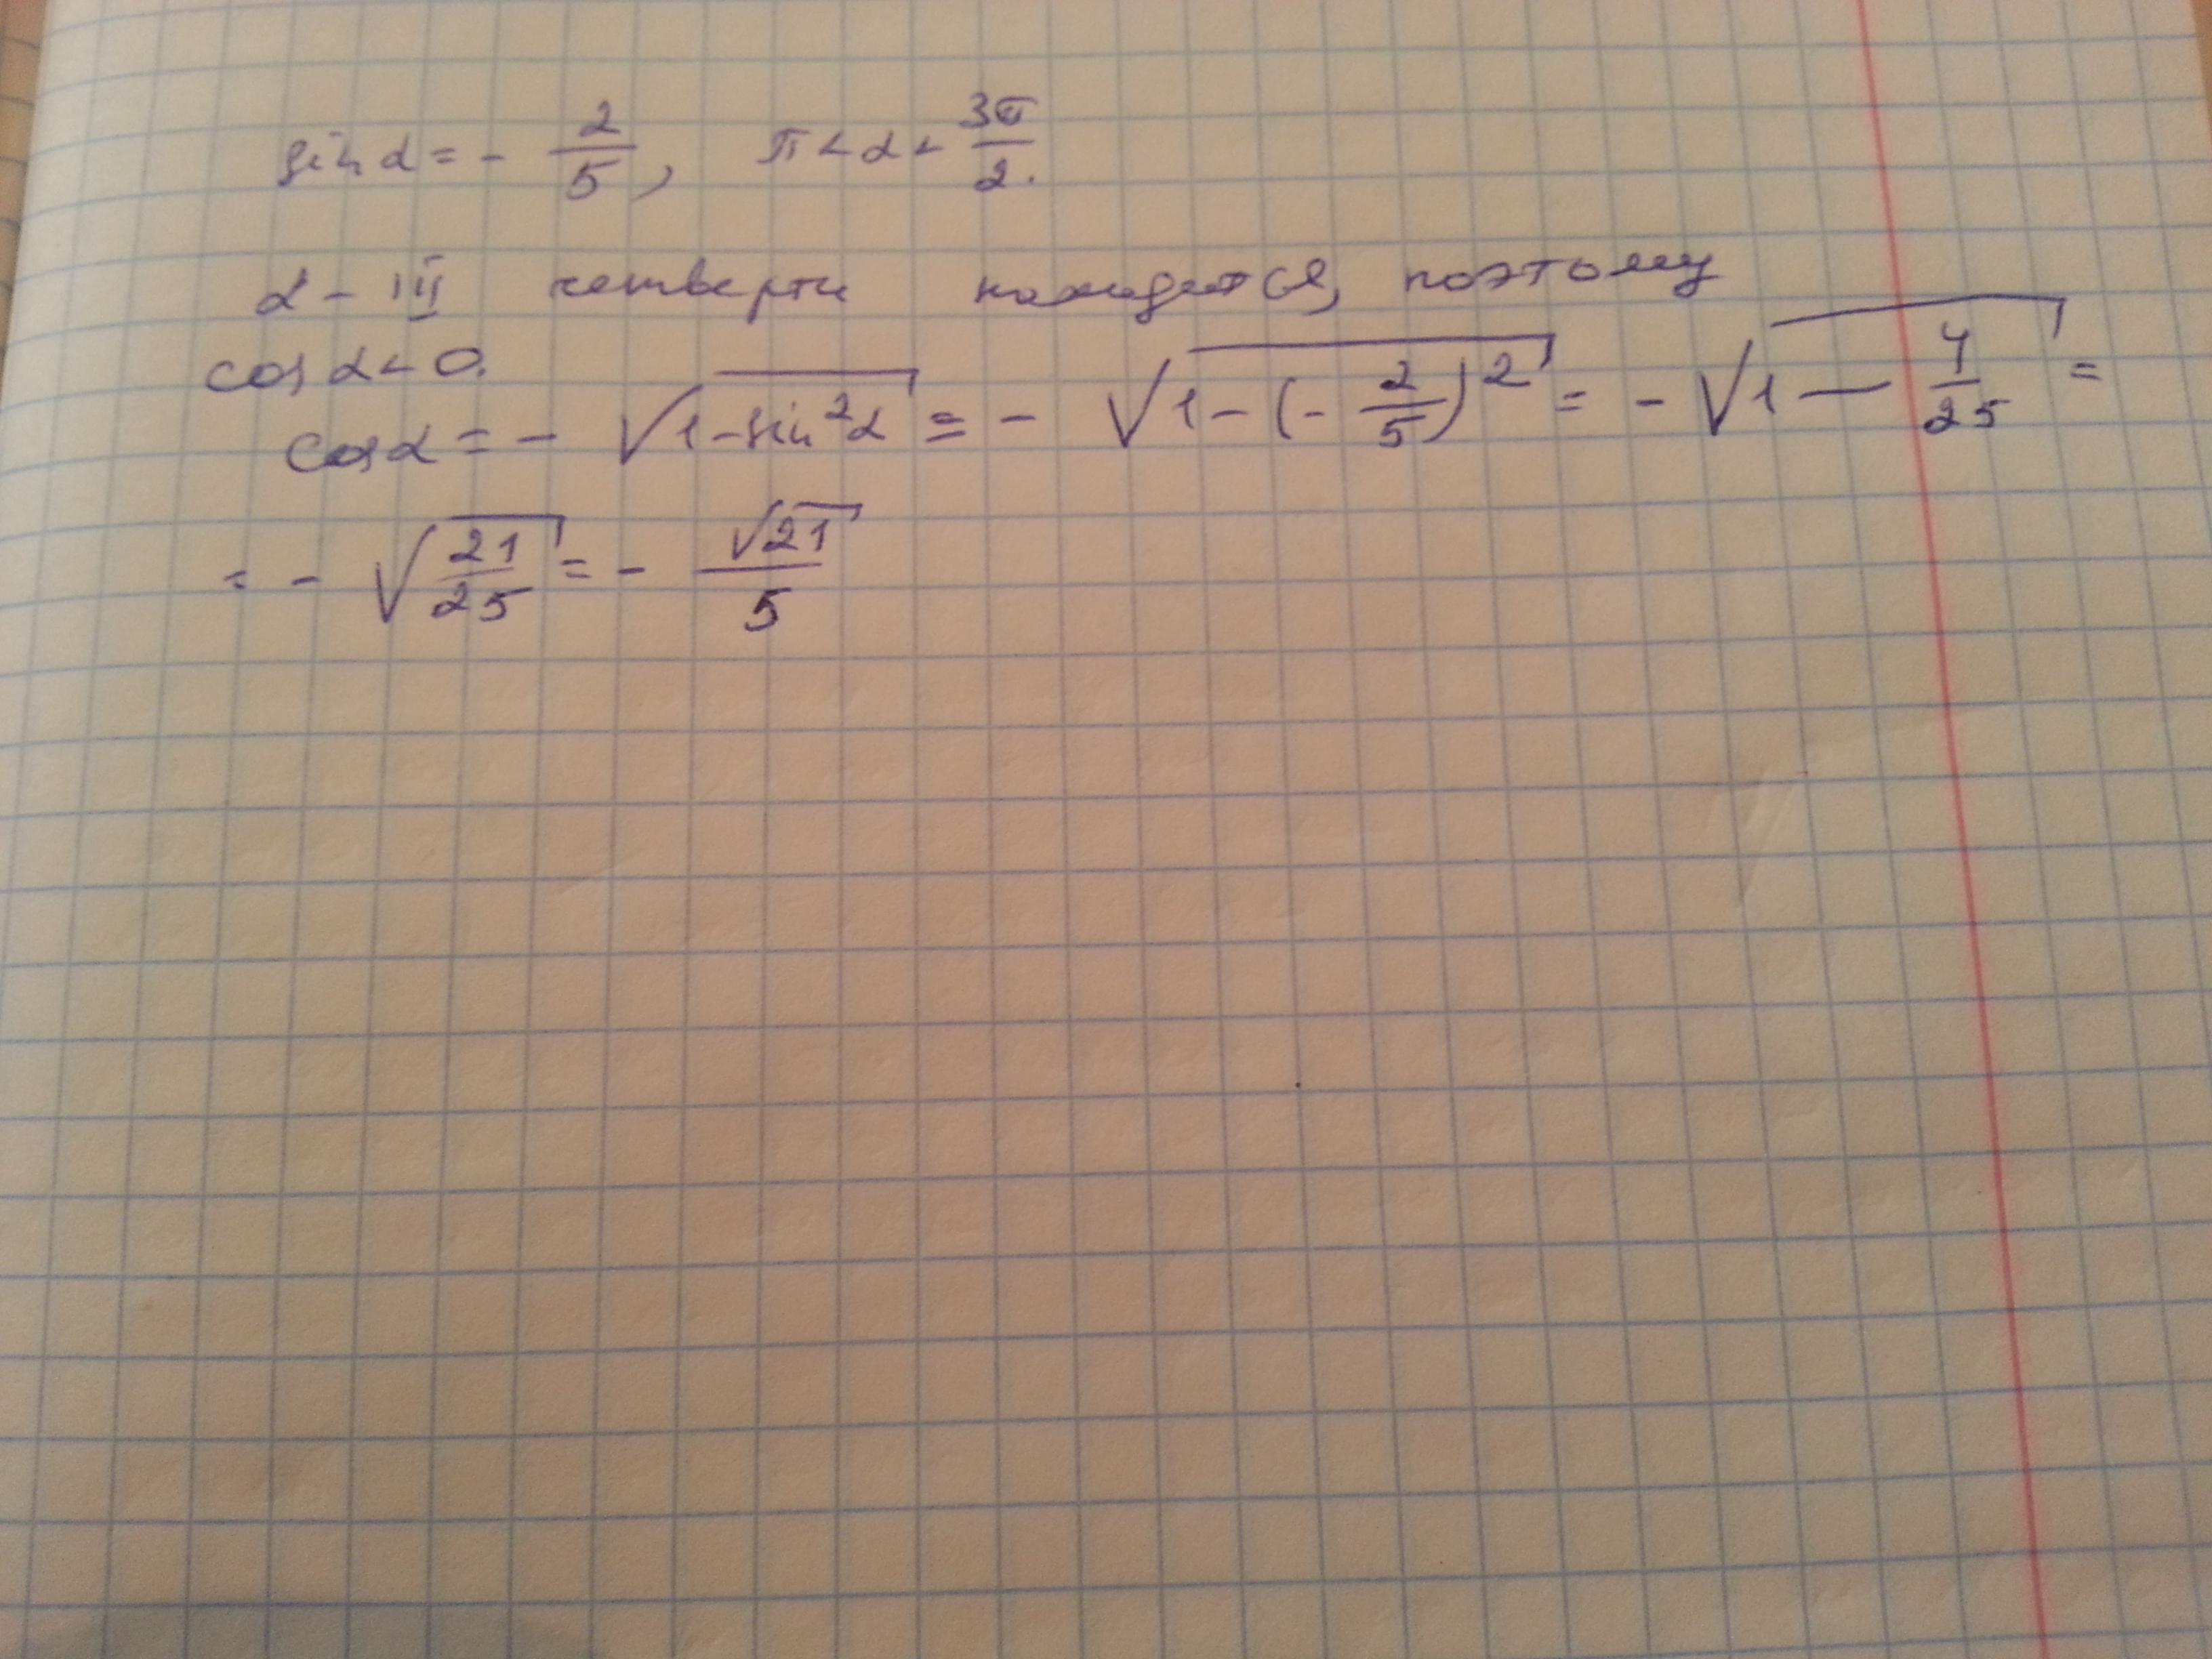 sin α = - 2/5, π < α < 3π/2.
α - III четверти находится, поэтому
cos α < 0.
cos α = - √(1 - sin²α) = - √(1 - (- 2/5)²) = - √(1 - 4/25) =
= - √(21/25) = - √21/5